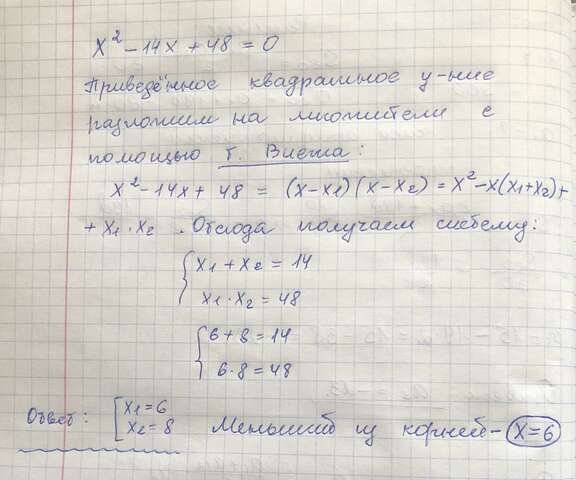 x² - 14x + 48 = 0
Приведённое квадратное у-ние
разложим на множители с
помощью т. Виета:
x² - 14x + 48 = (x-x₁)(x-x₂) = x² - x(x₁+x₂) +
+ x₁·x₂. Отсюда получаем систему:
{ x₁ + x₂ = 14
x₁·x₂ = 48
{ 6 + 8 = 14
6·8 = 48
Ответ: [ x₁ = 6
x₂ = 8 Меньший из корней - x=6